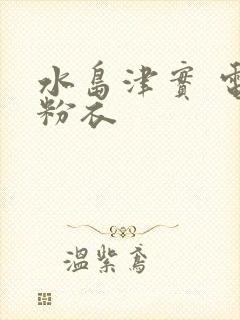 水島津實 電
粉衣
溫紫鳶